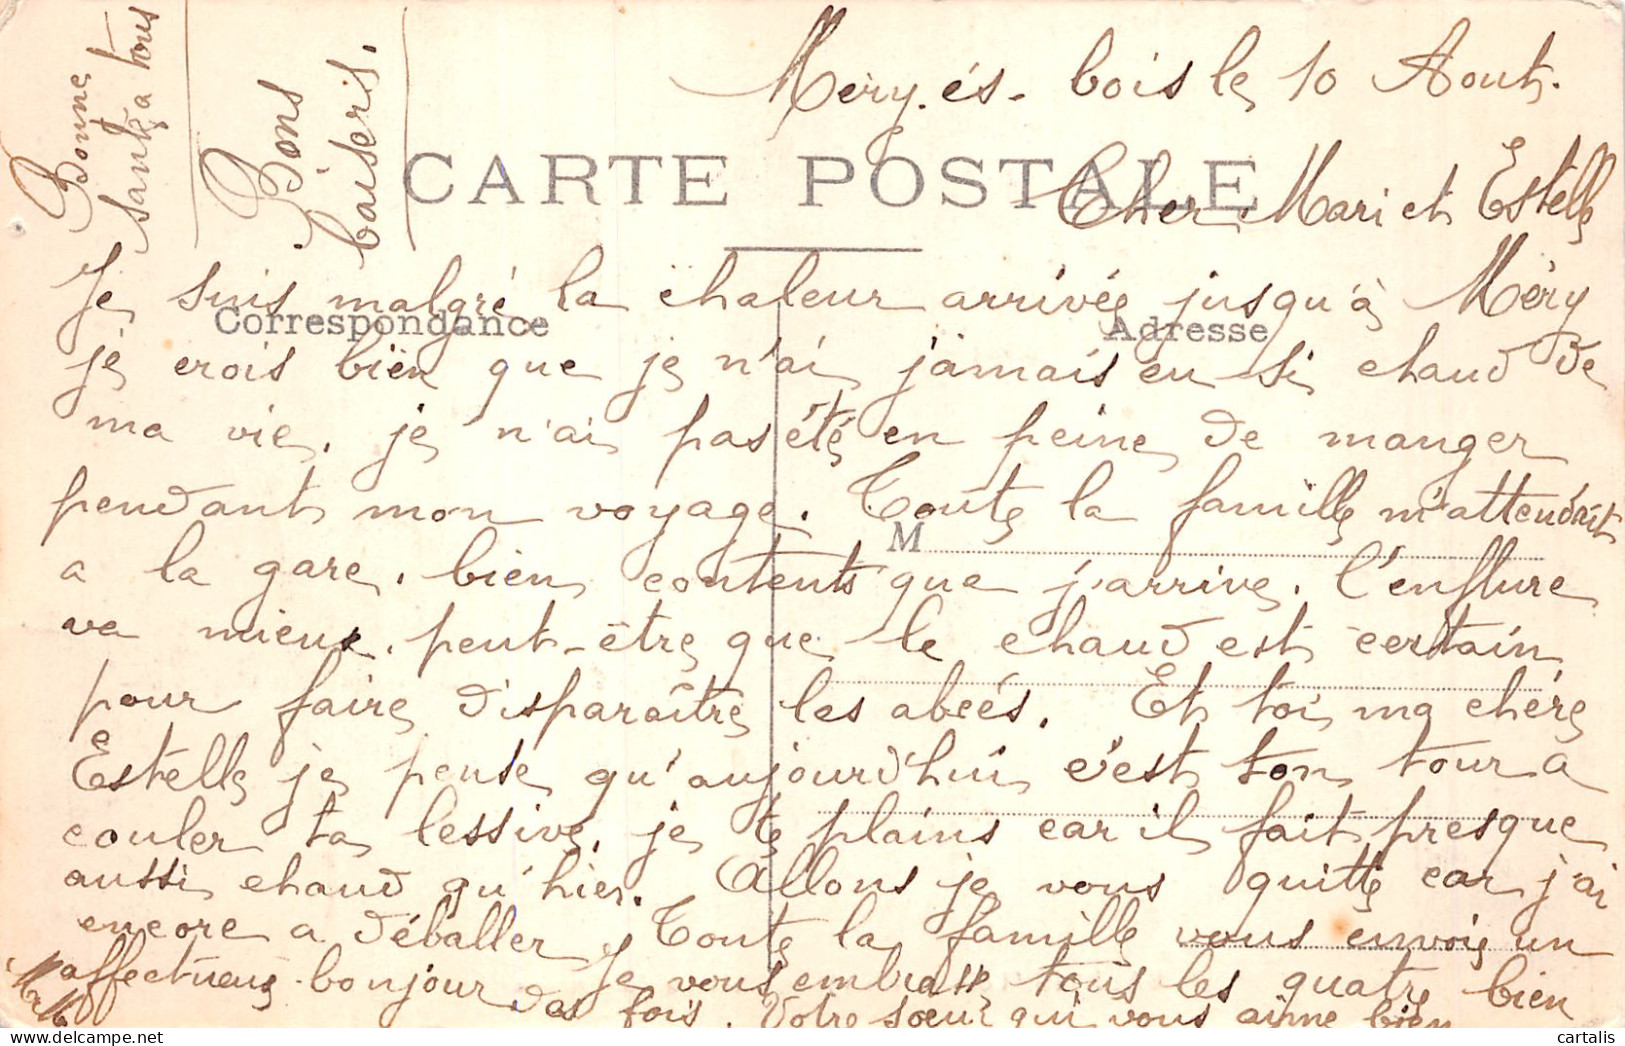 Méry-ès-bois le 10 Aout.
Bonne
santé a tous
Bons
baisers.
CARTE POSTALE
Cher Mari et Estelle
Je suis malgré la chaleur arrivée jusqu'à Méry
Correspondance
Adresse
je crois bien que je n'ai jamais eu si chaud de
ma vie. je n'ai pas été en peine de manger
pendant mon voyage. Toute la famille m'attendait
M
a la gare. bien contents que j'arrive. l'enflure
va mieux. peut-être que le chaud est certain
pour faire disparaître les abcés. Et toi ma chère
Estelle je pense qu'aujourd'hui c'est ton tour a
couler ta lessive. je te plains car il fait presque
aussi chaud qu'hier. Allons je vous quitte car j'ai
encore a déballer. Toute la famille vous envoie un
affectueux bonjour Je vous embrasse tous les quatre bien
des fois. Votre soeur qui vous aime bien
cartalis